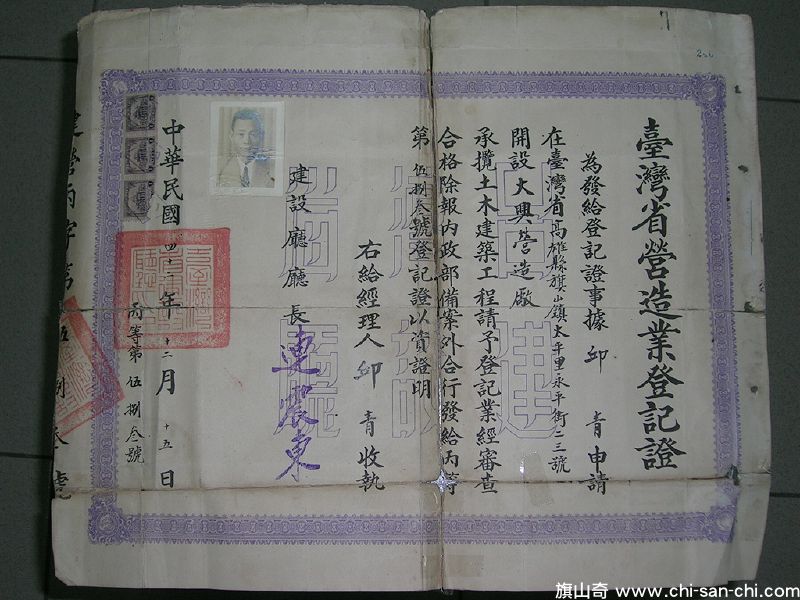 臺灣省營造業登記證
為發給登記證事據邱青申請
在臺灣省高雄縣旗山鎮太平里永平街二三號
開設大興營造廠
承攬土木建築工程請予登記業經審查
合格除報內政部備案外合行發給丙等
第伍捌叁號登記證以資證明
右給經理人邱青收執
建設廳廳長連震東
中華民國四十二年十二月十五日
丙等第伍捌叁號
建營丙字第伍捌叁號
臺灣省建設廳
旗山奇 www.chi-san-chi.com